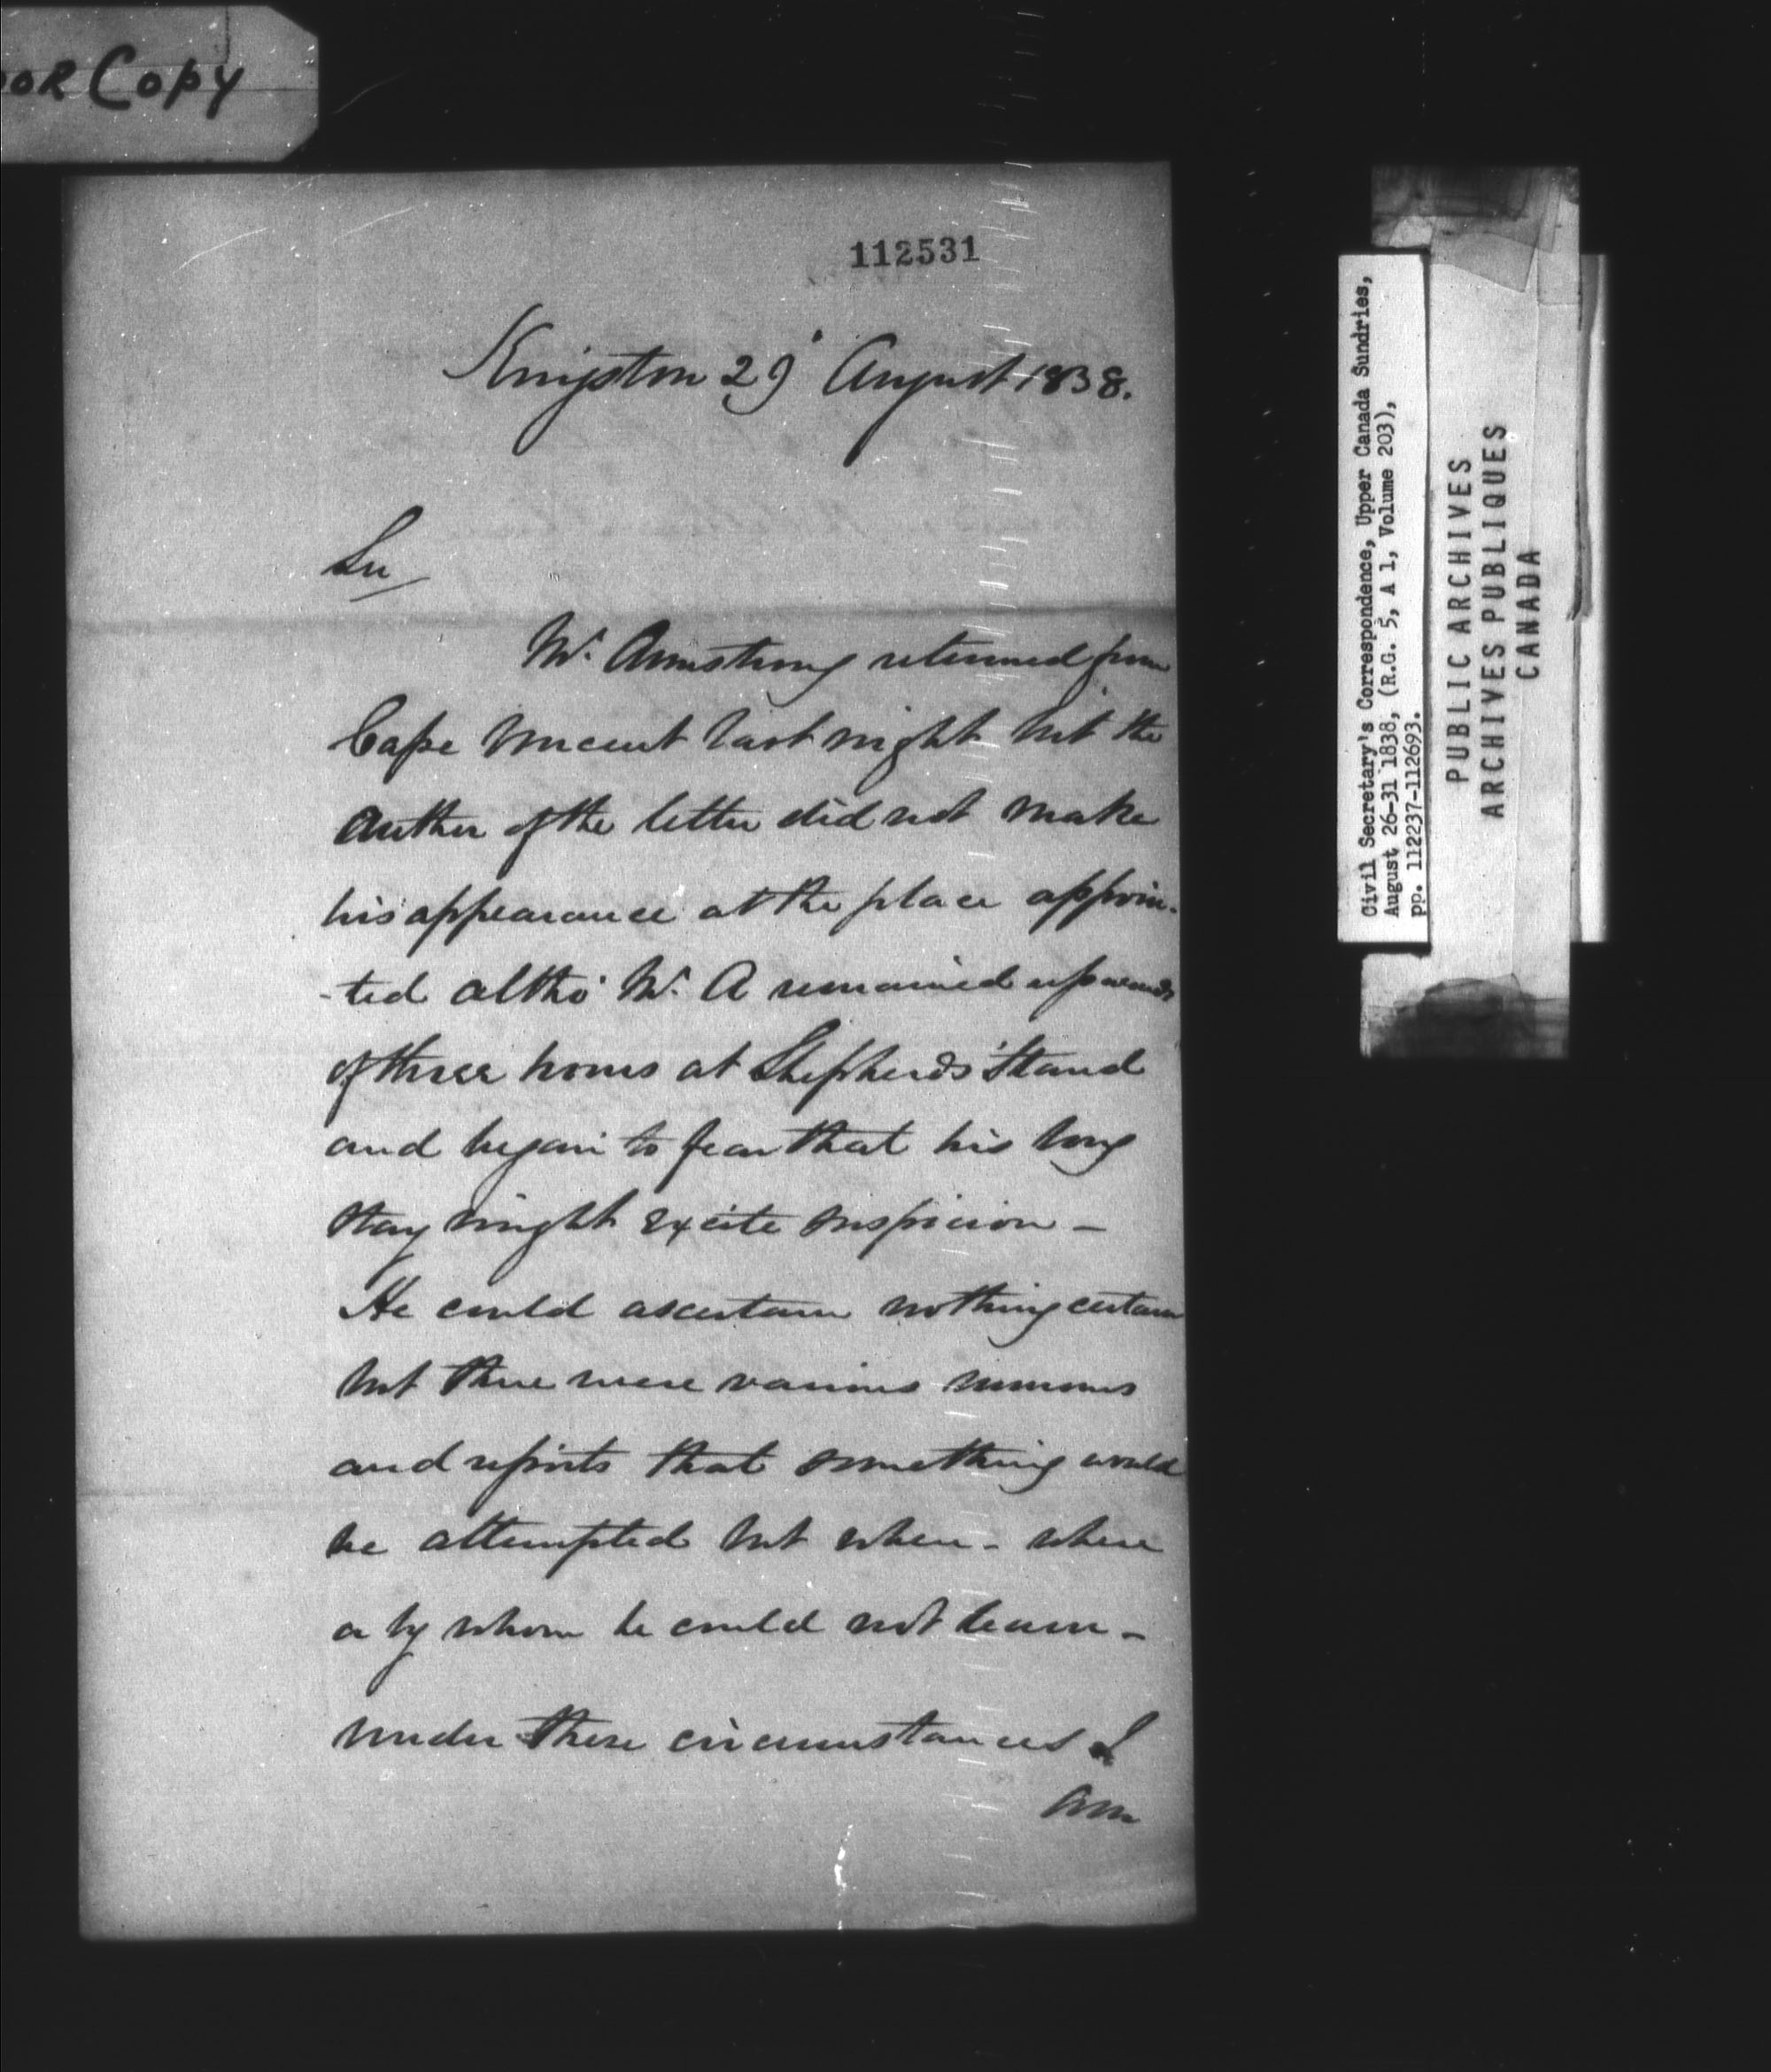 OOR Copy
112531
Kingston 29 August 1838.
Sir
Mr. Armstrong returned from
Cape Vincent last night but the
Author of the letter did not make
his appearance at the place appoin-
-ted altho' Mr. A remained upwards
of three hours at Shepherds Stand
and began to fear that his long
stay might excite suspicion -
He could ascertain nothing certain
but there were various rumours
and reports that something would
be attempted but when - where
or by whom he could not learn -
Under these circumstances I
am
Civil Secretary's Correspondence, Upper Canada Sundries,
August 26-31 1838, (R.G. 5, A 1, Volume 203),
pp. 112237-112693.
PUBLIC ARCHIVES
ARCHIVES PUBLIQUES
CANADA